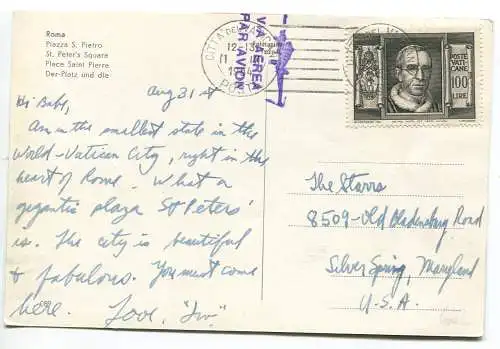 Roma
Piazza S. Pietro
St. Peter's Square
Place Saint Pierre
Der-Platz und die
Aug 31st
Hi Babe,
Am in the smallest state in the
World - Vatican City, right in the
heart of Rome. What a
gigantic plaza St Peters'
is. The city is beautiful
& fabulous. You must come
here. Love, "Irv."
CITTÀ DEL
POSTE
VIA AEREA
PAR AVION
POSTE
VATI-
CANE
100
LIRE
The Starrs
8509-Old Bladensburg Road
Silver Spring, Maryland
U.S.A.